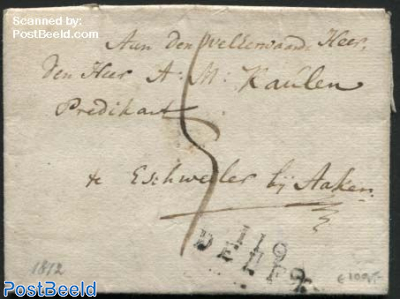 Scanned by:
PostBeeld.com
Aan den Wellerwaard. Heer,
den Heer A: M: Kaulen
Predikant
5
te Eschweiler bij Aaken
1812
PostBeeld